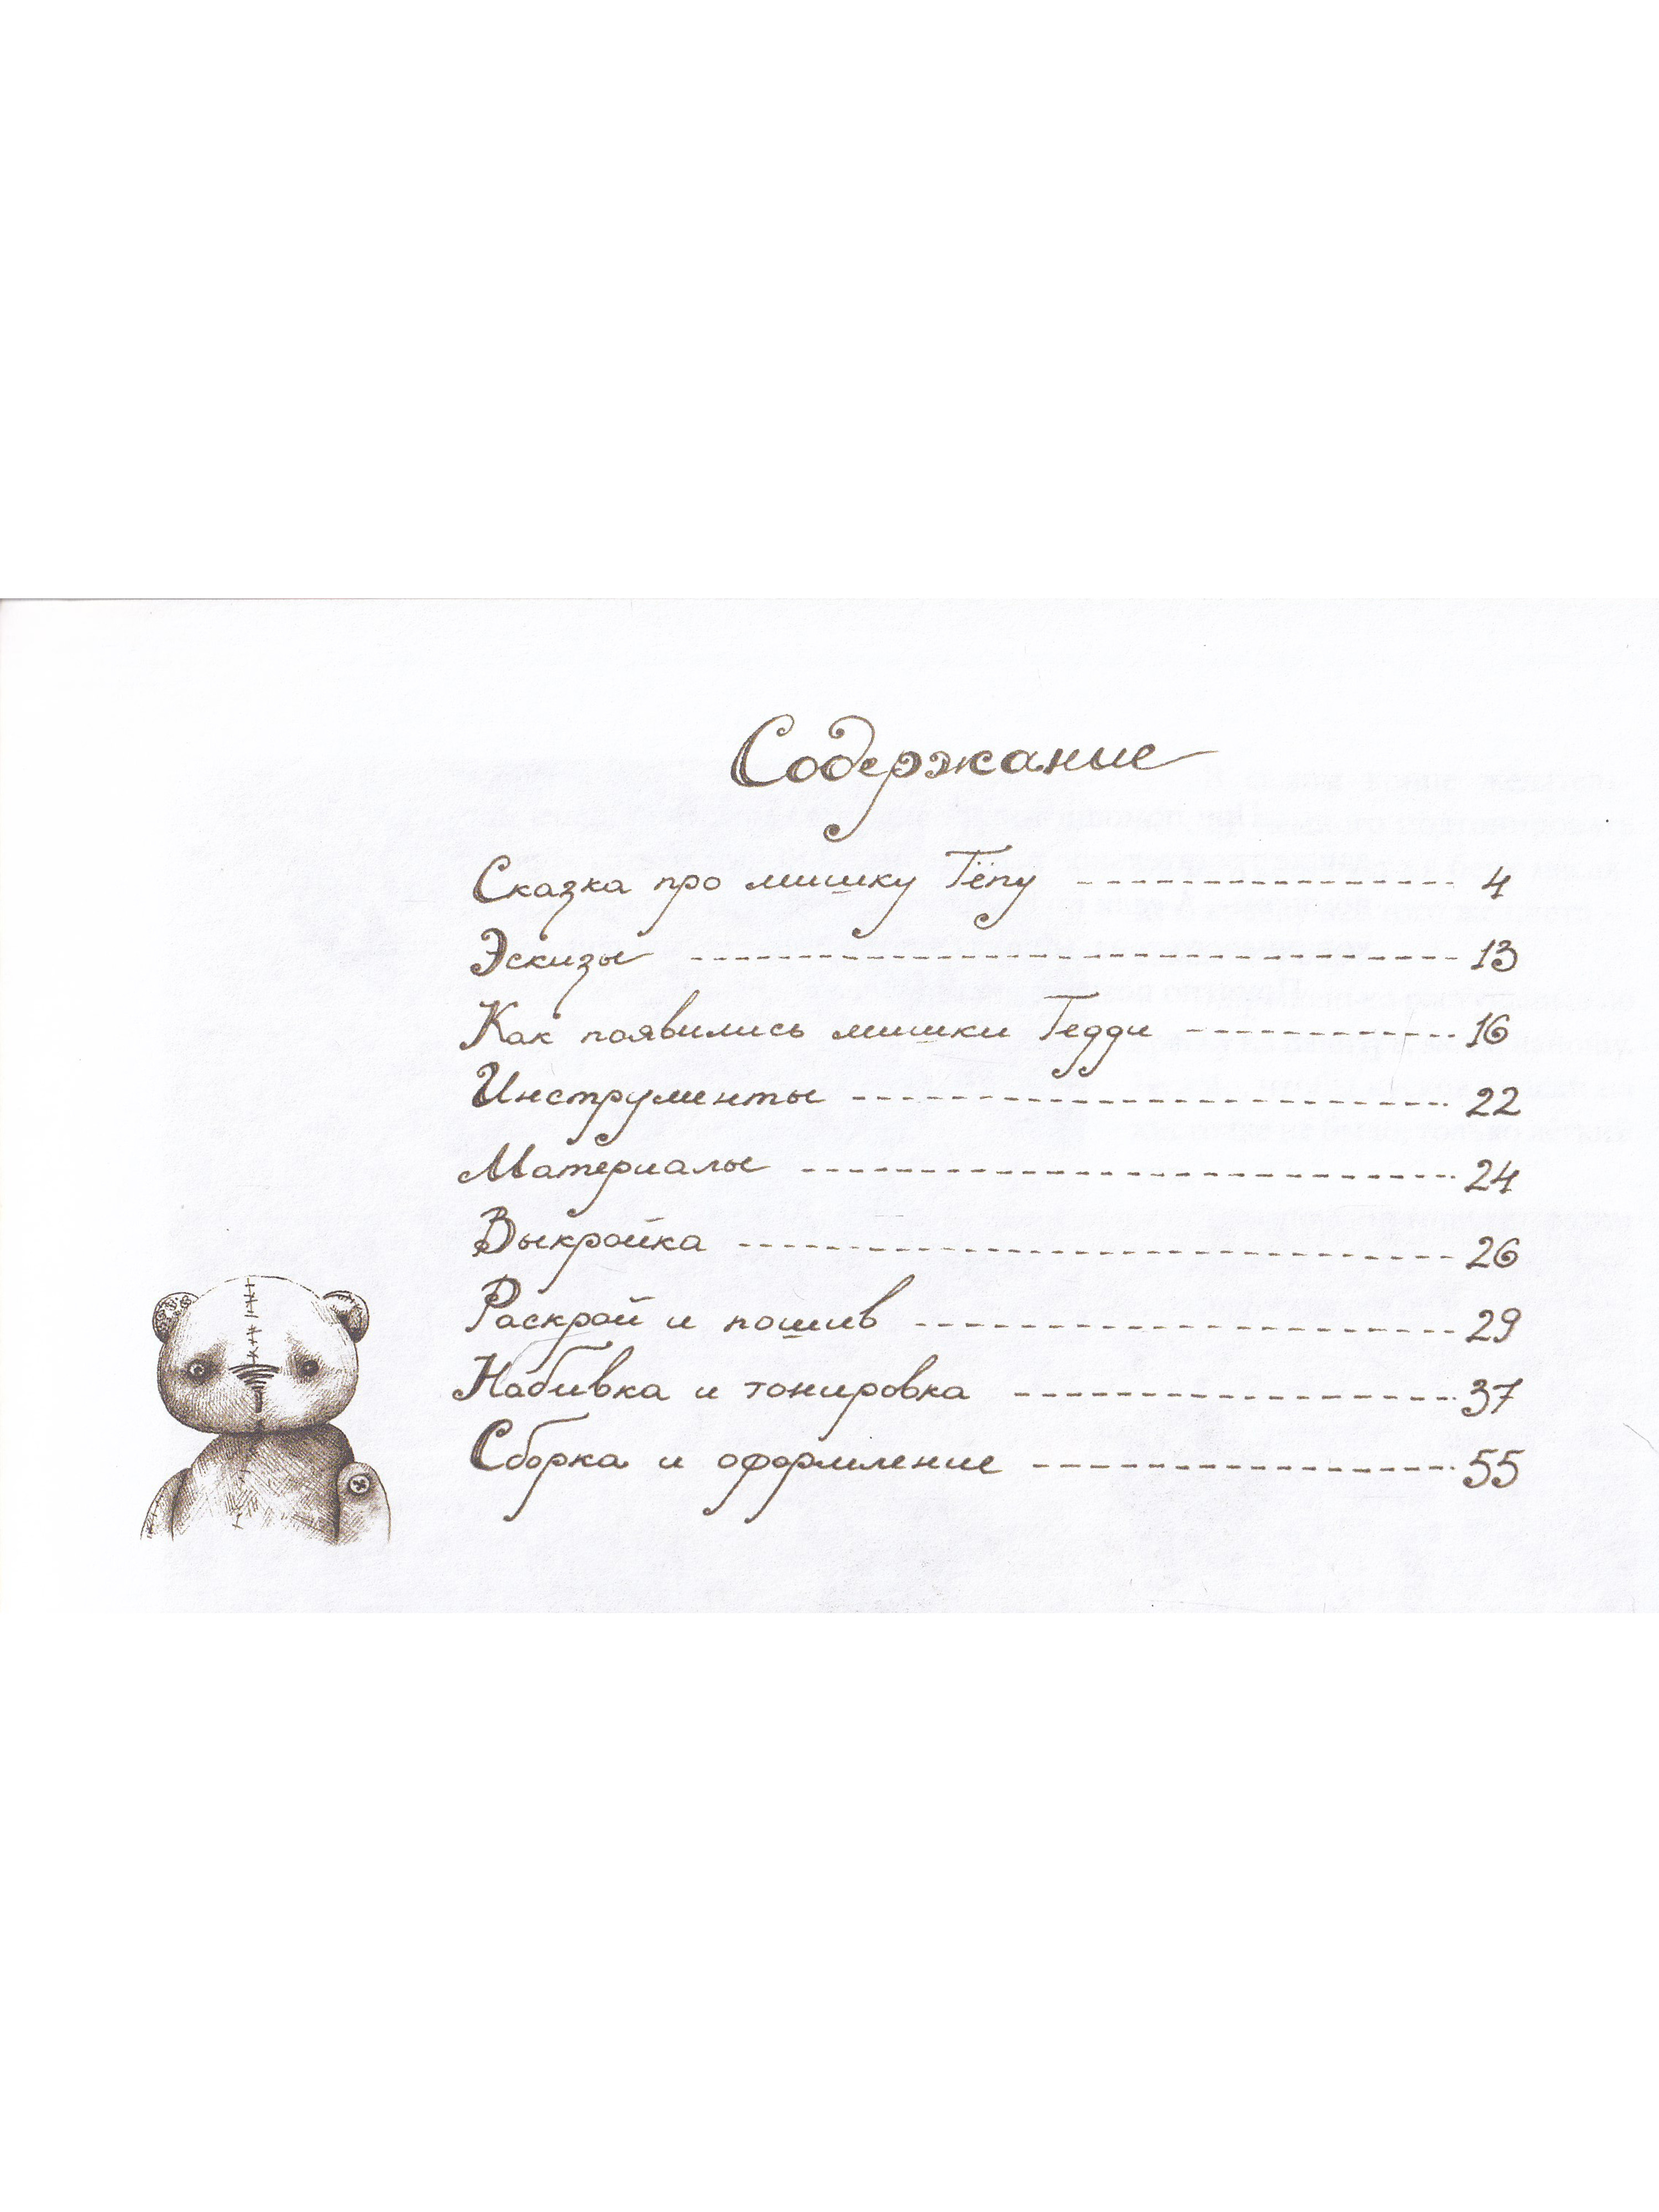 Содержание
Сказка про мишку Тёпу ------------ 4
Эскизы ------------------------ 13
Как появились мишки Тедди --------- 16
Инструменты ------------------- 22
Материалы --------------------- 24
Выкройка ---------------------- 26
Раскрой и пошив ----------------- 29
Набивка и тонировка -------------- 37
Сборка и оформление ------------- 55